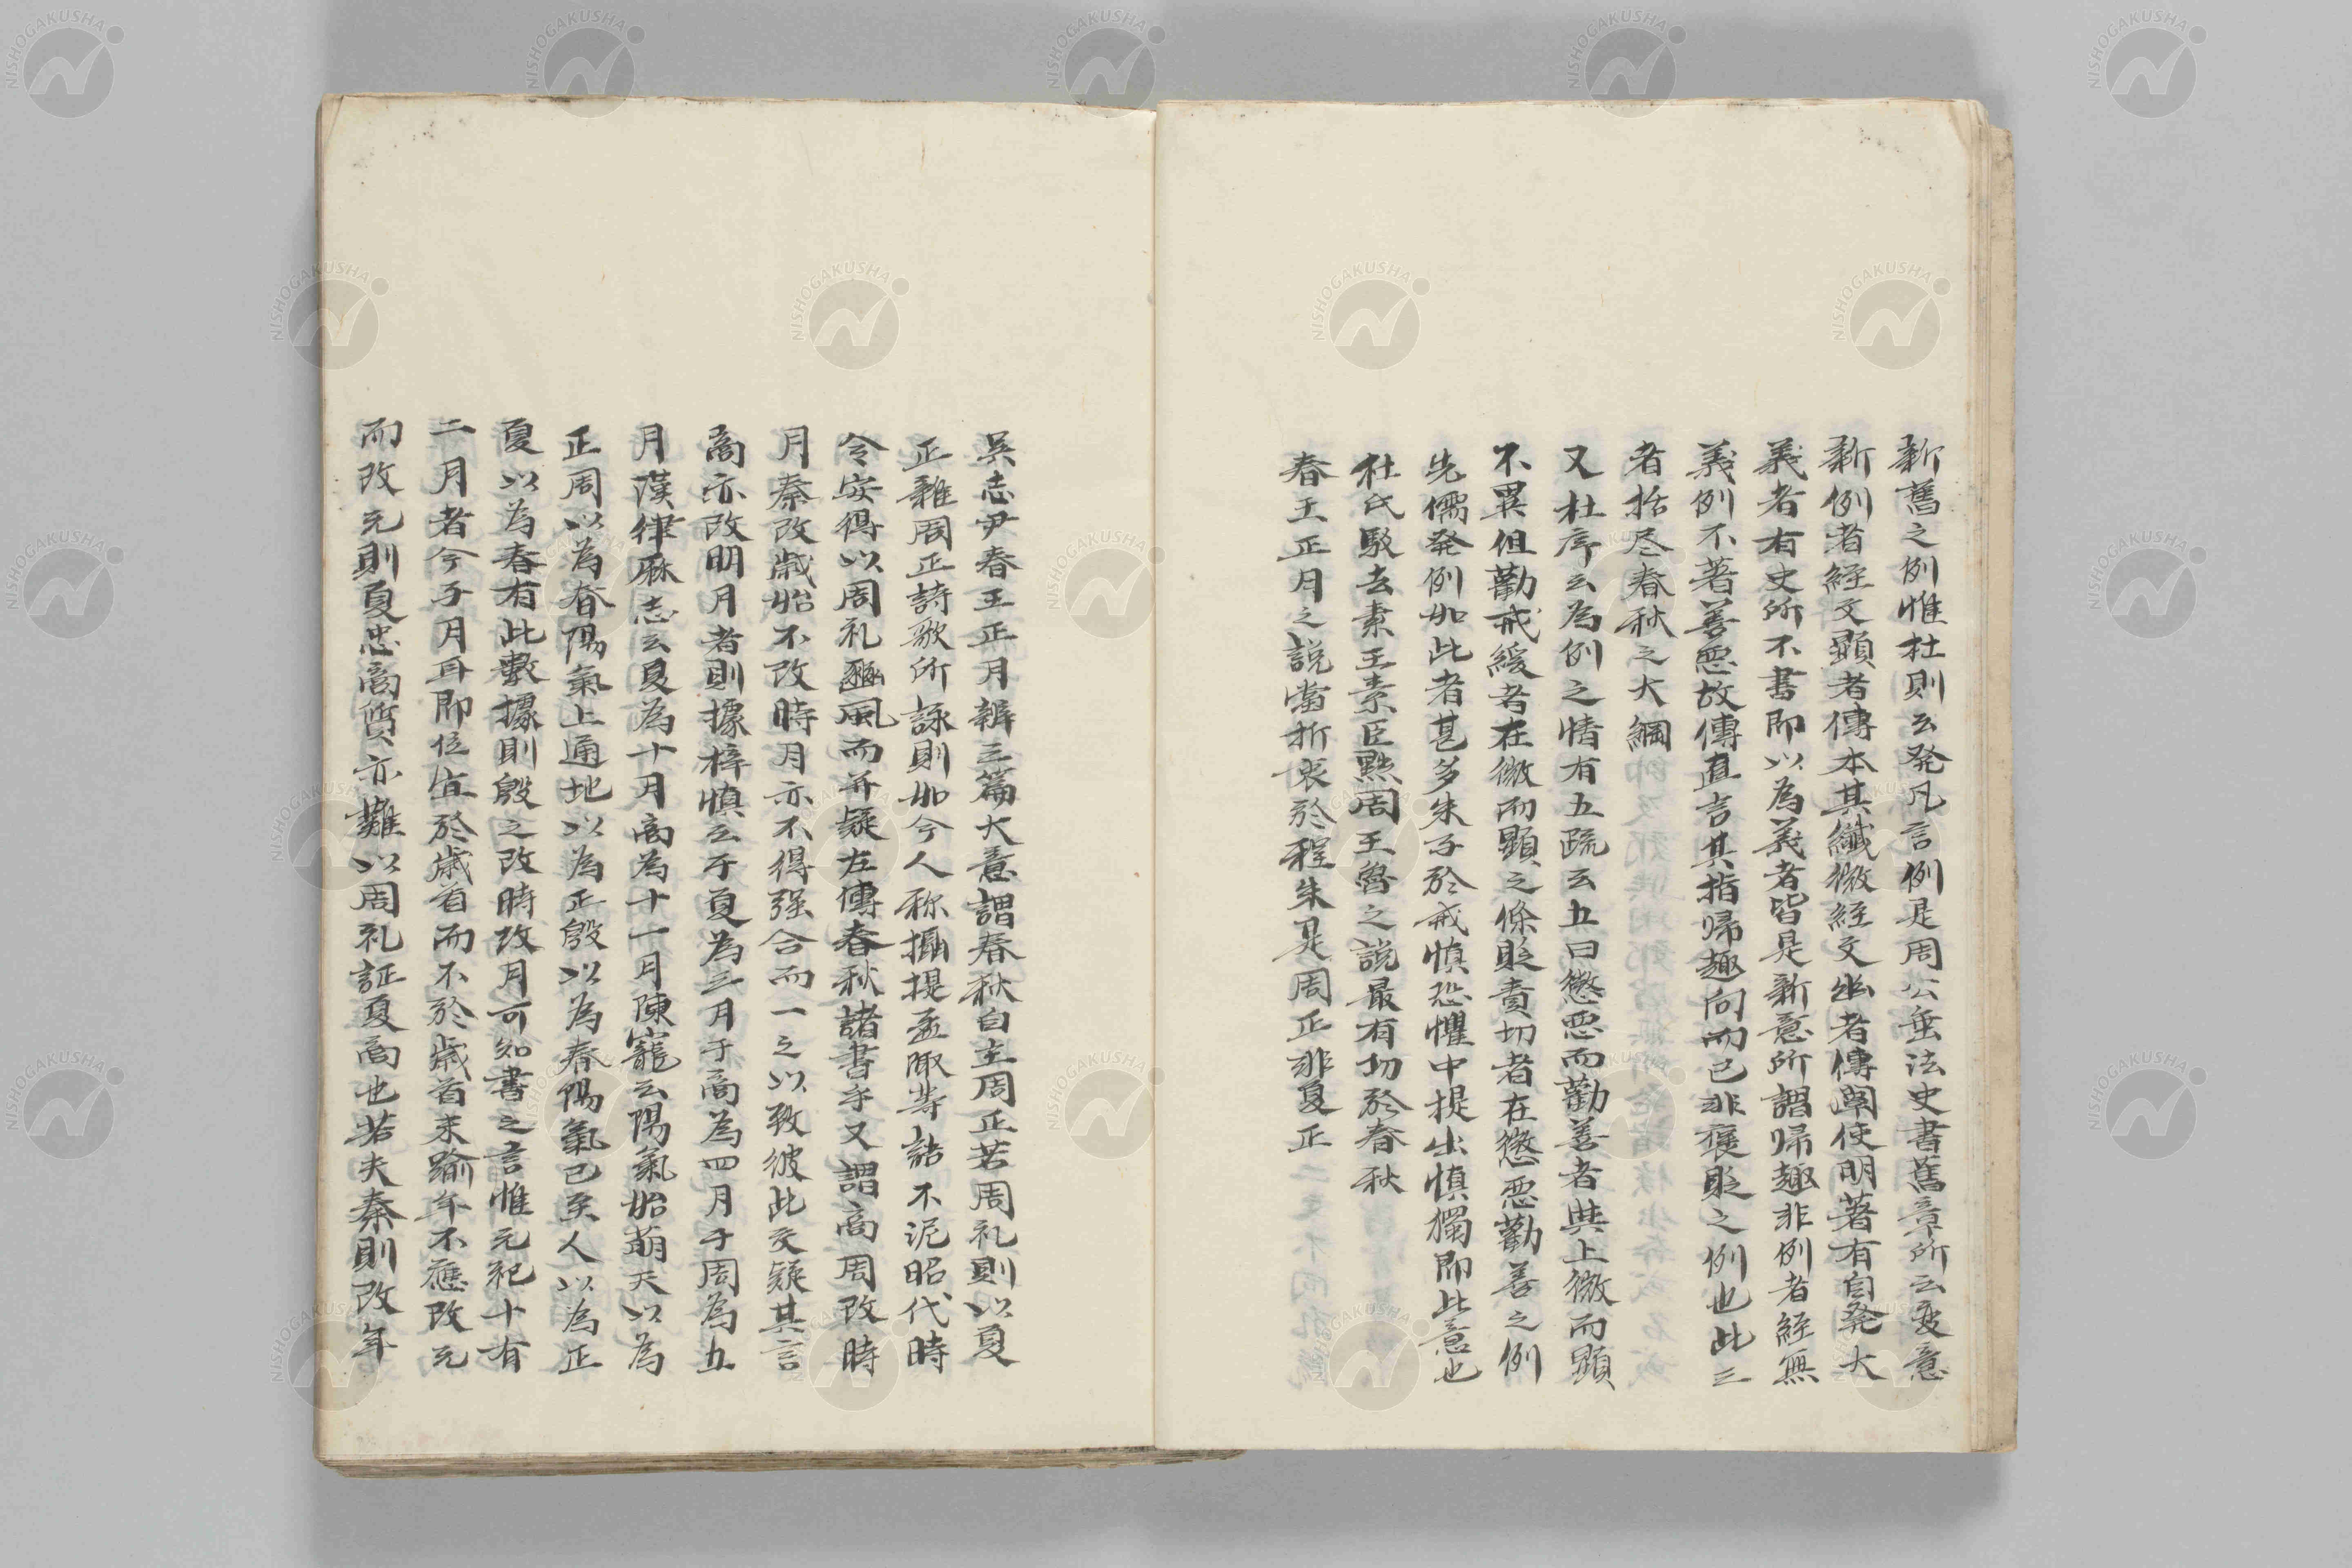 新舊之例惟杜則云発凡言例是周公垂法史書舊章所云変意
新例者経文顕者傳本其纖微経文幽者傳闡使明著有自発大
義者有史所不書即以為義者皆是新意所謂帰趣非例者経無
義例不著善悪故傳直言其指帰趣向而已非褒貶之例也此三
者括尽春秋之大綱
又杜序云為例之情有五疏云五曰懲悪而勸善者與上微而顕
不異但勸戒緩者在微而顕之條貶責切者在懲悪勸善之例
先儒発例如此者甚多朱子於戒慎恐懼中提出慎獨即此意也
杜氏駁去素王素臣黜周王魯之説最有切於春秋
春王正月之説當折衷於程朱是周正非夏正
吳志尹春王正月辨三篇大意謂春秋自主周正若周礼則以夏
正雜周正詩歌所詠則如今人称攝提孟陬等語不泥昭代時
令安得以周礼豳風而并疑左傳春秋諸書乎又謂商周改時
月秦改歳始不改時月亦不得强合而一之以致彼此交疑其言
商亦改明月者則據梓慎云于夏為三月于商為四月于周為五
月漢律厤志云夏為十月商為十一月陳寵云陽氣始萌天以為
正周以為春陽氣上通地以為正殷以為春陽氣已至人以為正
夏以為春有此數據則殷之改時改月可知書之言惟元祀十有
二月者今子月耳即位宜於歳首而不於歳首未踰年不應改元
而改元則夏忠商質亦難以周礼証夏商也若夫秦則改年